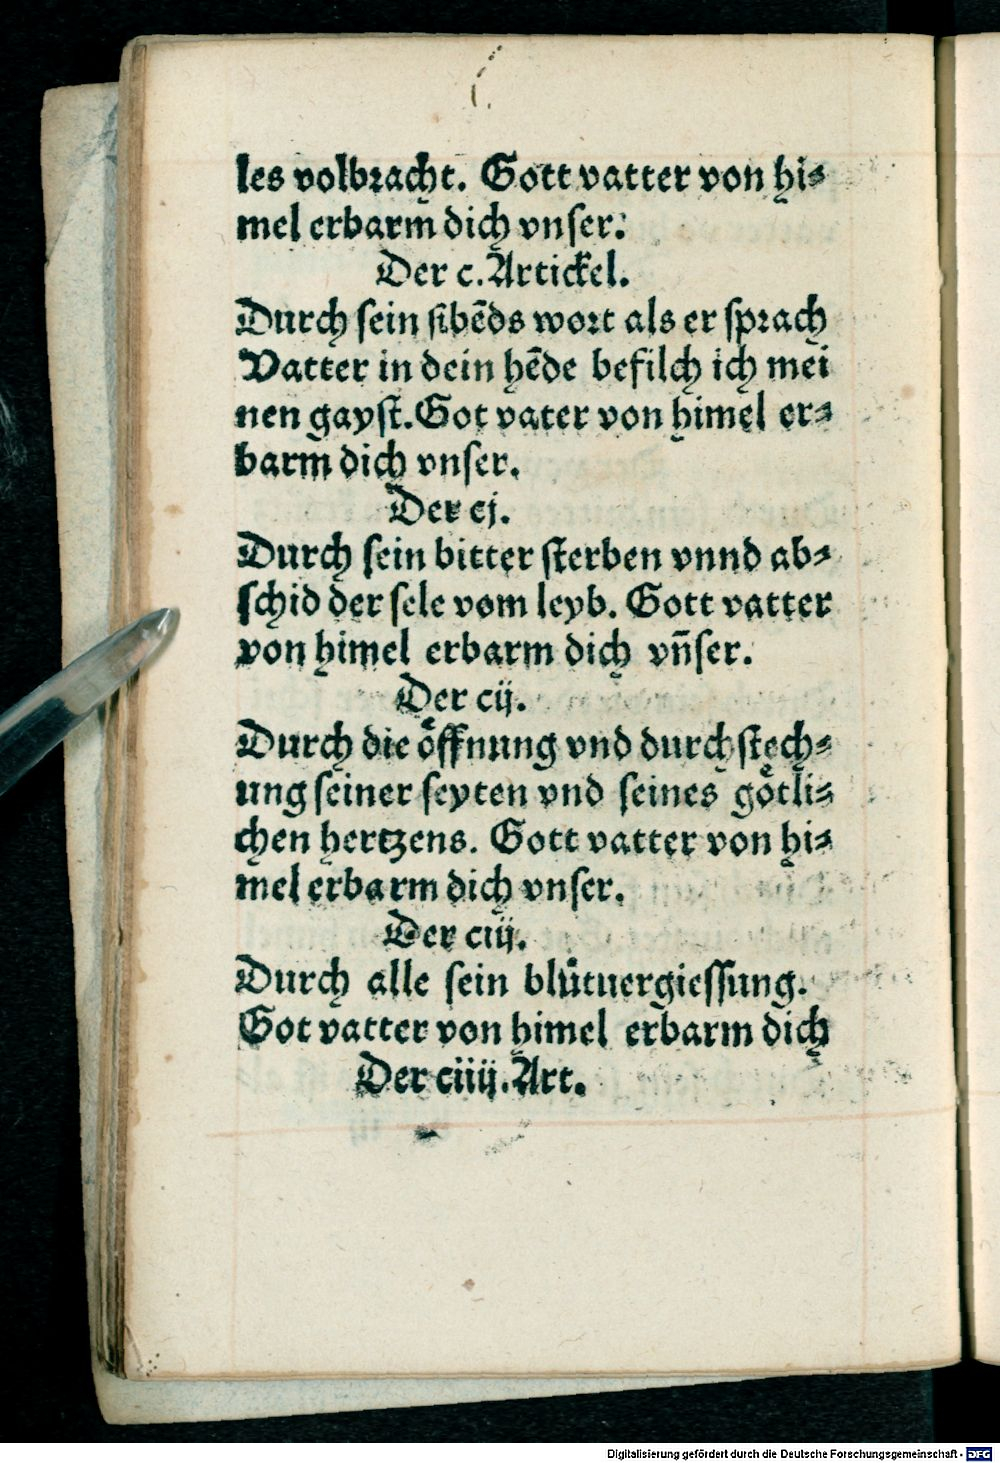 les volbracht. Gott vatter von hi-
mel erbarm dich vnser.
Der c. Artickel.
Durch sein sibēds wort als er sprach
Vatter in dein hēde befilch ich mei
nen gayst. Got vater von himel er-
barm dich vnser.
Der cj.
Durch sein bitter sterben vnnd ab-
schid der sele vom leyb. Gott vatter
von himel erbarm dich vn̄ser.
Der cij.
Durch die oͤffnung vnd durchstech-
ung seiner seyten vnd seines goͤtli-
chen hertzens. Gott vatter von hi-
mel erbarm dich vnser.
Der ciij.
Durch alle sein blůtuergiessung.
Got vatter von himel erbarm dich
Der ciiij. Art.
Digitalisierung gefördert durch die Deutsche Forschungsgemeinschaft - DFG